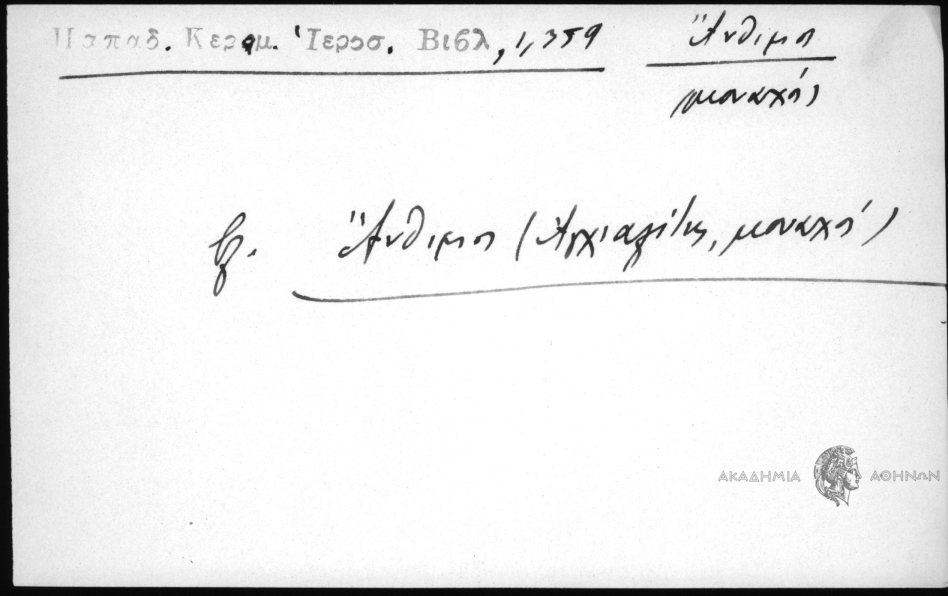 Παπαδ. Κεραμ. Ἱεροσ. Βιβλ, 1, 359
Ἄνθιμος
μοναχός
βλ. Ἄνθιμος (Ἀγχιαλίτης, μοναχός)
ΑΚΑΔΗΜΙΑ ΑΘΗΝΩΝ